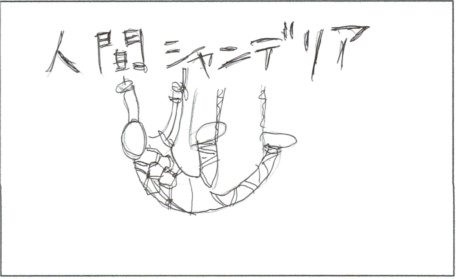 人間シャンデリア